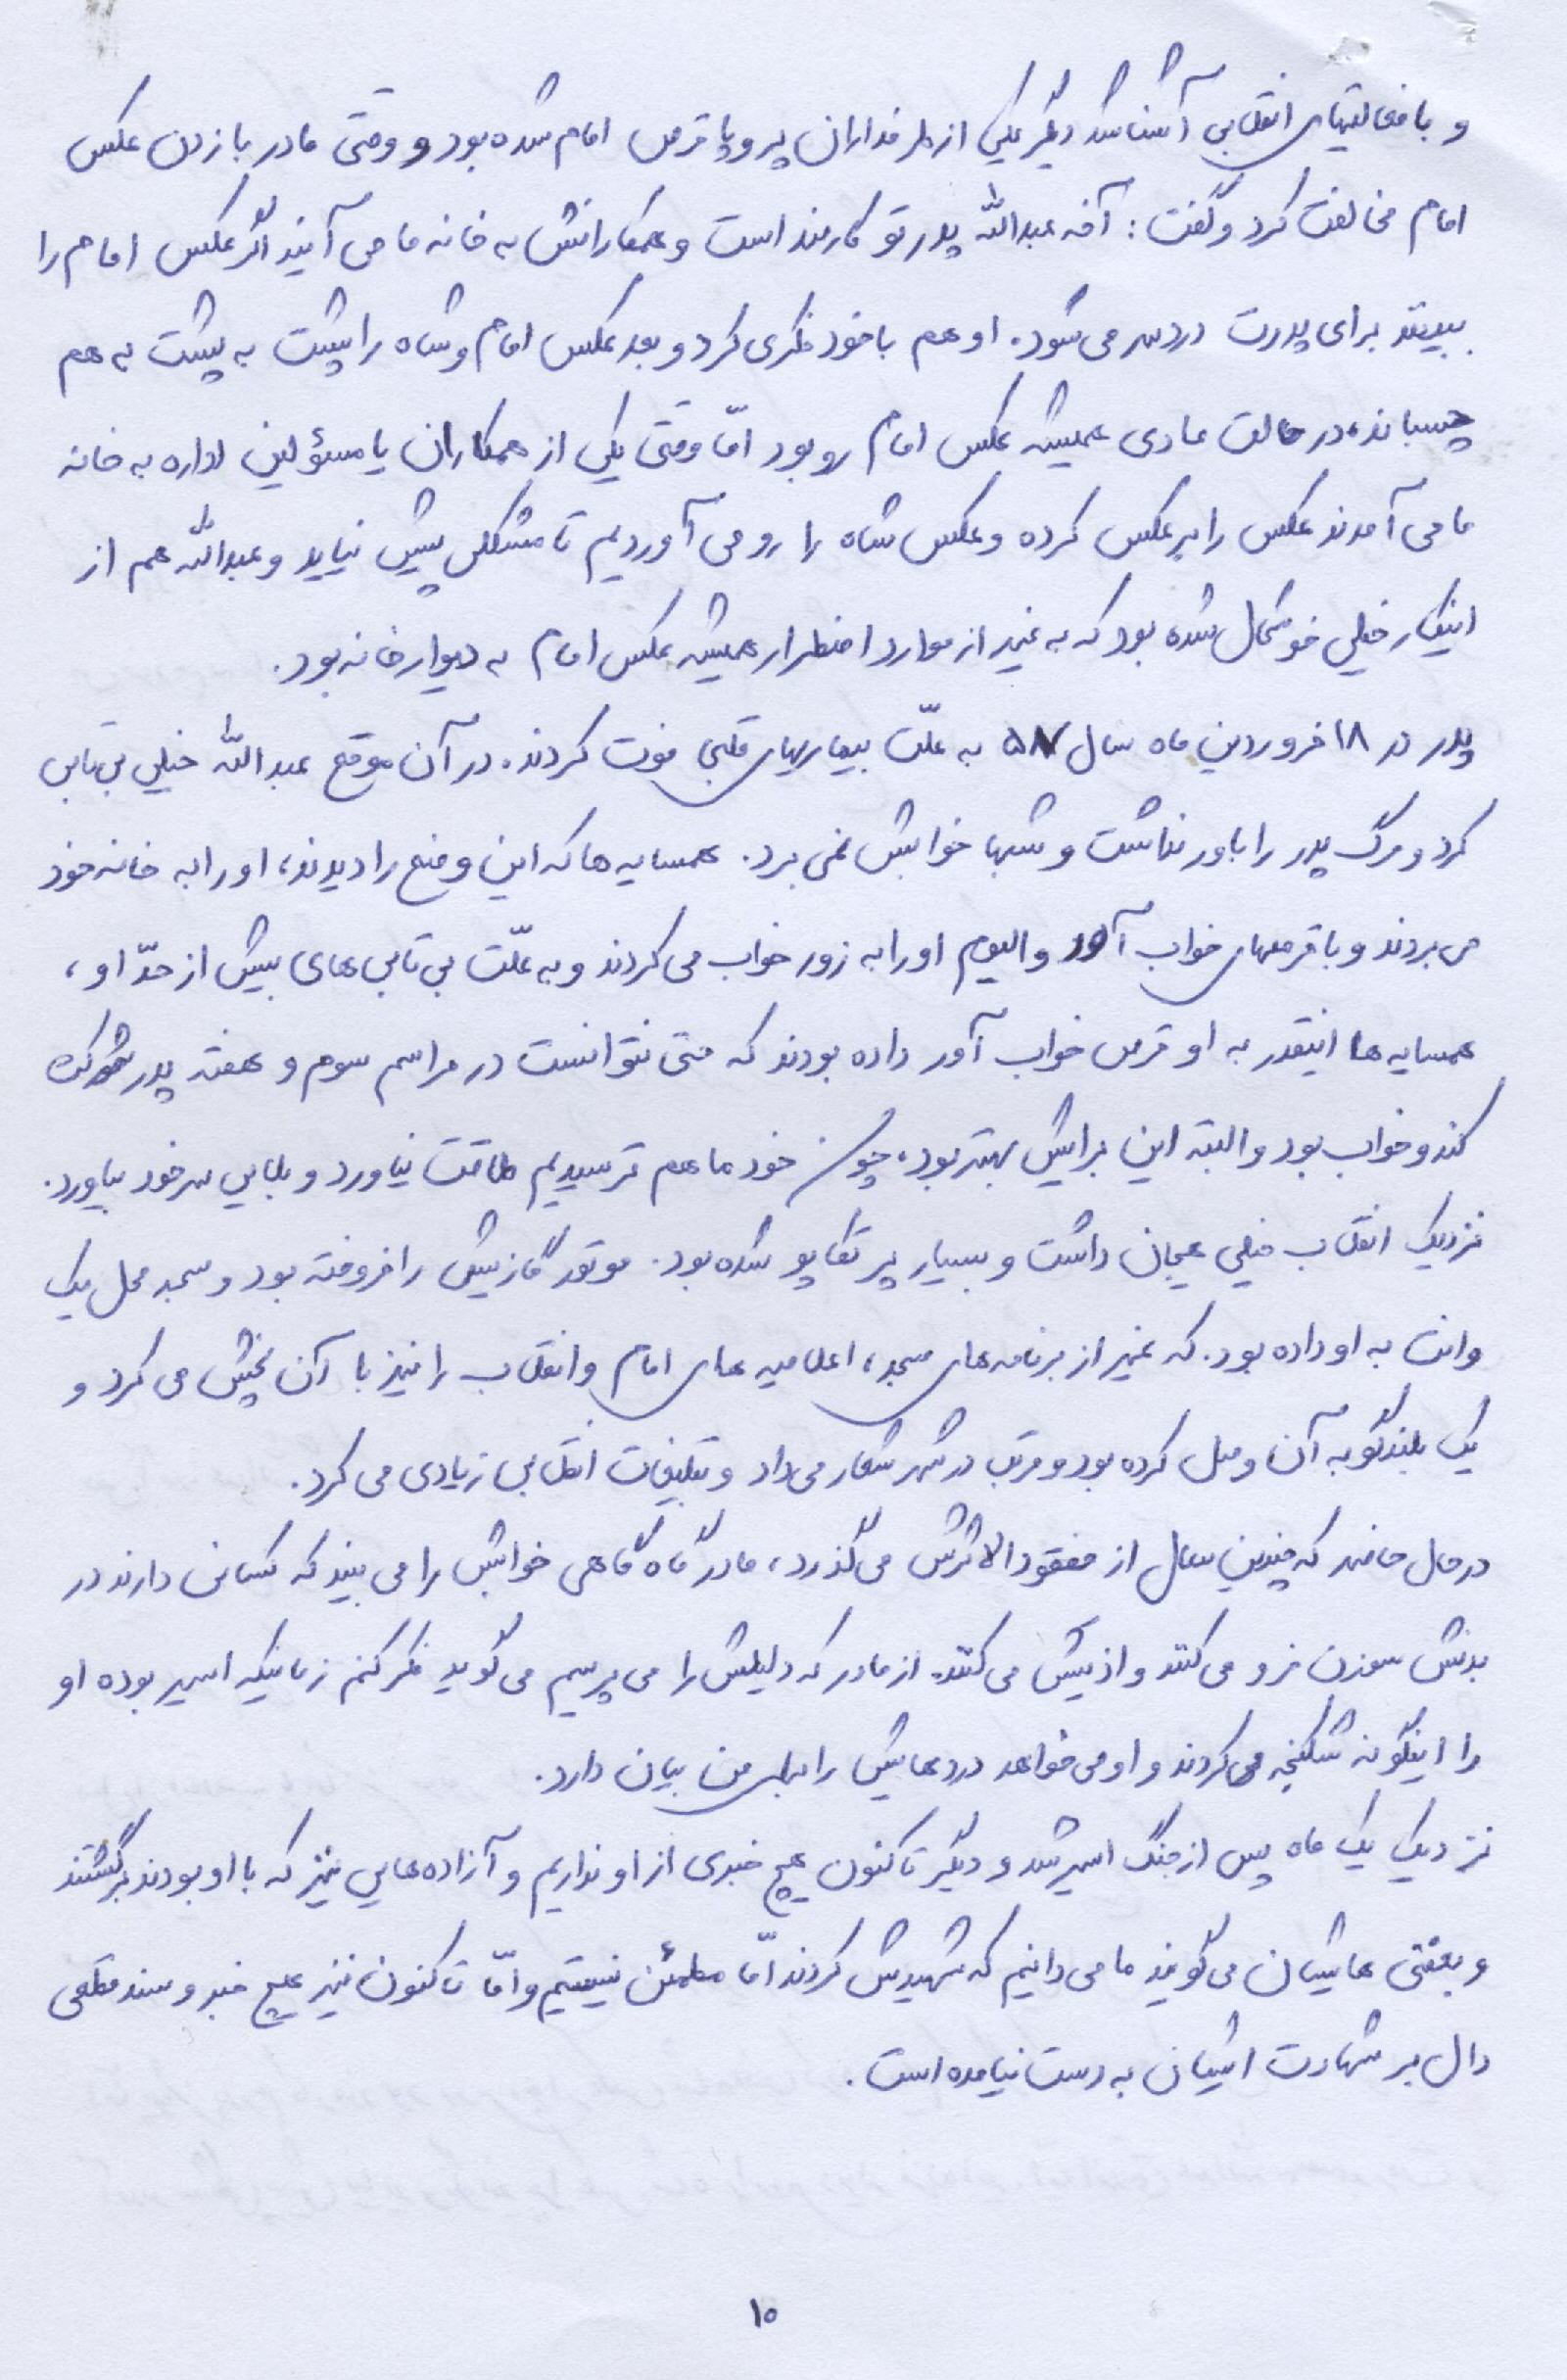 و با فعالیتهای انقلابی آشنا شد دیگر یکی از طرفداران پر و پا قرص امام شده بود و وقتی مادر با زدن عکس
امام مخالفت کرد و گفت : آخه عبدالله پدر تو کارمند است و همکارانش به خانه ما می آیند اگر عکس امام را
ببینند برای پدرت دردسر می شود. او هم با خود فکری کرد و بعد عکس امام و شاه را پشت به پشت به هم
چسبانده در حالت عادی همیشه عکس امام رو بود امّا وقتی یکی از همکاران یا مسؤلین اداره به خانه
ما می آمدند عکس را برعکس کرده و عکس شاه را رو می آوردیم تا مشکلی پیش نیاید و عبدالله هم از
اینکار خیلی خوشحال شده بود که به غیر از موارد اضطرار همیشه عکس امام به دیوار خانه بود.
پدر در ۱۸ فروردین ماه سال ۵۷ به علّت بیماریهای قلبی فوت کردند. در آن موقع عبدالله خیلی بی تابی
کرد و مرگ پدر را باور نداشت و شبها خوابش نمی برد. همسایه ها که این وضع را دیدند، او را به خانه خود
می بردند و با قرصهای خواب آور والیوم او را به زور خواب می کردند و به علّت بی تابی های بیش از حدّ او،
همسایه ها اینقدر به او قرص خواب آور داده بودند که حتی نتوانست در مراسم سوم و هفته پدر شرکت
کند و خواب بود و البته این برایش بهتر بود، چون خود ما هم ترسیدیم طاقت نیاورد و بلایی سر خود بیاورد.
نزدیک انقلاب خیلی هیجان داشت و بسیار پر تکاپو شده بود. موتور گازیش را فروخته بود و مسجد محل یک
وانت به او داده بود. که غیر از برنامه های مسجد، اعلامیه های امام و انقلاب را نیز با آن پخش می کرد و
یک بلندگو به آن وصل کرده بود و مرتب در شهر شعار می داد و تبلیغات انقلابی زیادی می کرد.
در حال حاضر که چندین سال از مفقودالاثرش می گذرد، مادر گاه گاهی خوابش را می بیند که کسانی دارند در
بدنش سوزن فرو می کنند و اذیتش می کنند. از مادر که دلیلش را می پرسیم می گوید فکر کنم زمانیکه اسیر بوده او
را اینگونه شکنجه می کردند و او می خواهد دردهایش را برای من بیان دارد.
نزدیک یک ماه پس از جنگ اسیر شد و دیگر تا کنون هیچ خبری از او نداریم و آزاده هایی نیز که با او بودند برگشتند
و بعضی هایشان می گویند ما می دانیم که شهیدش کردند امّا مطمئن نیستیم و امّا تا کنون نیز هیچ خبر و سند قطعی
دال بر شهادت ایشان به دست نیامده است.
۱۰